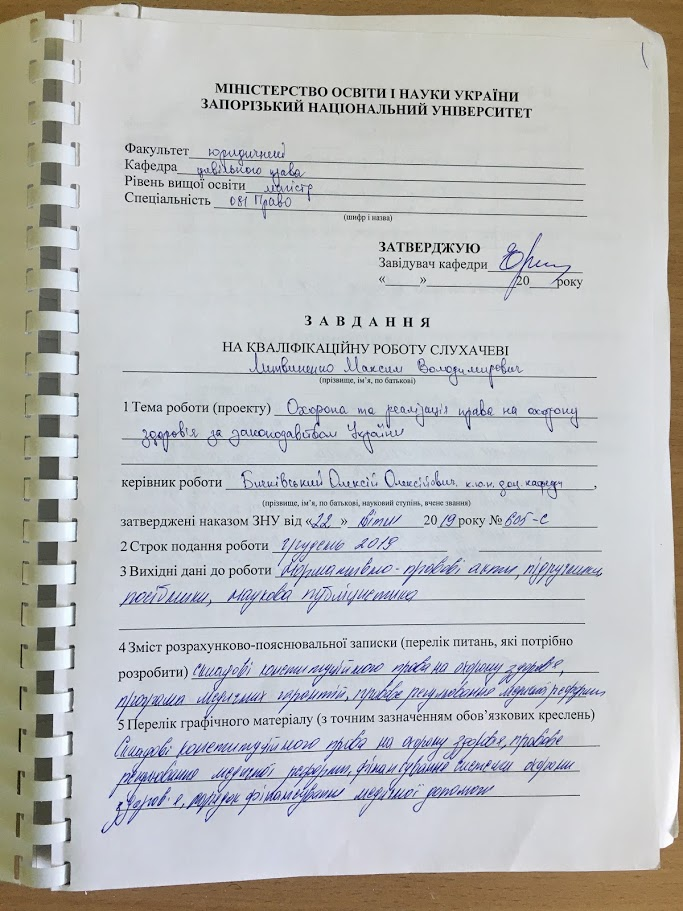 МІНІСТЕРСТВО ОСВІТИ І НАУКИ УКРАЇНИ
ЗАПОРІЗЬКИЙ НАЦІОНАЛЬНИЙ УНІВЕРСИТЕТ
Факультет юридичний
Кафедра цивільного права
Рівень вищої освіти магістр
Спеціальність 081 Право
(шифр і назва)
ЗАТВЕРДЖУЮ
Завідувач кафедри
«_____»____________20____року
З А В Д А Н Н Я
НА КВАЛІФІКАЦІЙНУ РОБОТУ СЛУХАЧЕВІ
Литвиненко Максим Володимирович
(прізвище, ім’я, по батькові)
1 Тема роботи (проекту) Охорона та реалізація права на охорону
здоров'я за законодавством України
керівник роботи Олексій Олексійович, к.ю.н. доц. кафедри,
(прізвище, ім’я, по батькові, науковий ступінь, вчене звання)
затверджені наказом ЗНУ від «22» 2019 року № 605-с
2 Строк подання роботи грудень 2019
3 Вихідні дані до роботи Нормативно-правові акти, підручники,
посібники, наукова публіцистика
4 Зміст розрахунково-пояснювальної записки (перелік питань, які потрібно
розробити) складові конституційного права на охорону здоров'я,
програма медичних гарантій, правове регулювання медичної реформи
5 Перелік графічного матеріалу (з точним зазначенням обов’язкових креслень)
Складові конституційного права на охорону здоров'я, правове
регулювання медичної реформи, фінансування системи охорони
здоров'я, порядок фінансування медичної допомоги